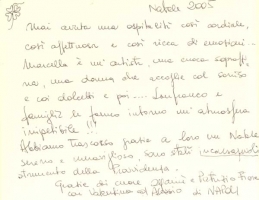 Natale 2005
Mai avuta una ospitalità così cordiale,
così affettuosa e così ricca di emozioni...
Marcella è un'artista, una cuoca sopraffi
na, una donna che accoglie col sorriso
e coi dolcetti e poi.... Gianfranco e
famiglia le fanno intorno un'atmosfera
irripetibile!!!
Abbiamo trascorso grazie a loro un Natale
sereno e meraviglioso, sono stati
strumento della Provvidenza.
Grazie di cuore e Patrizio
con Valentina ed Alessio di NAPOLI